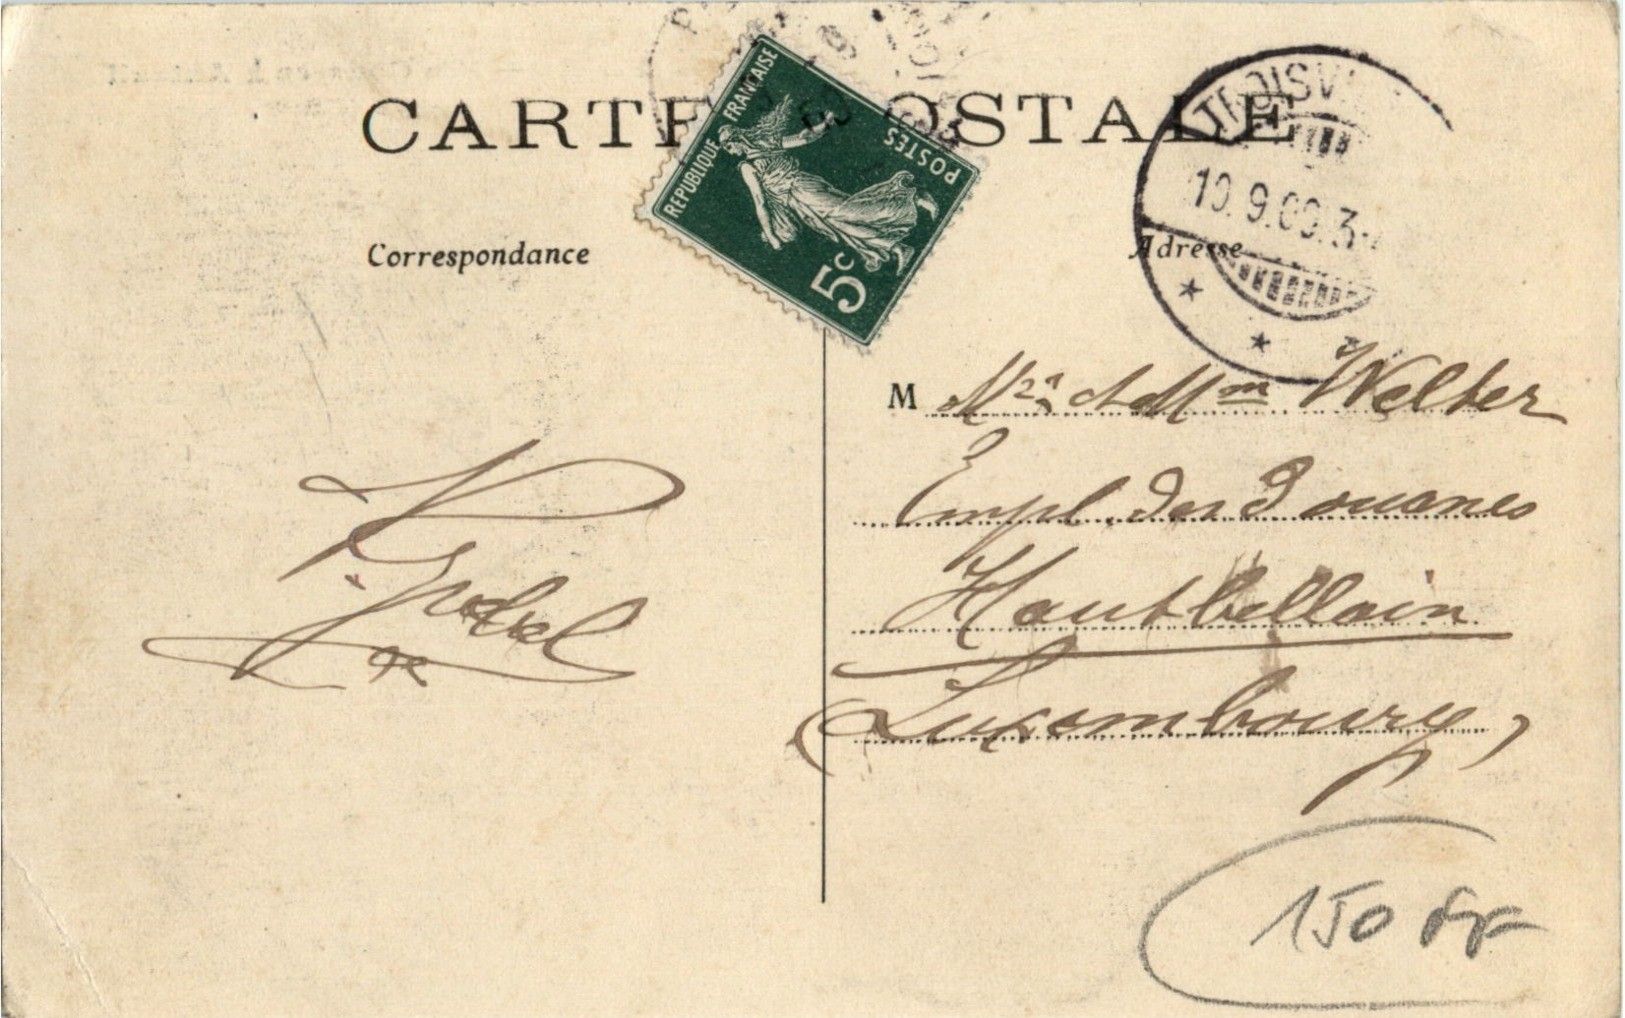 CARTE POSTALE
RÉPUBLIQUE FRANÇAISE
POSTES
5c
TROISVI
10.9.09.3
Correspondance
Adresse
M Mr et Mme Welter
Empl. des Douanes
Hautbellain
(Luxembourg)
150 FF